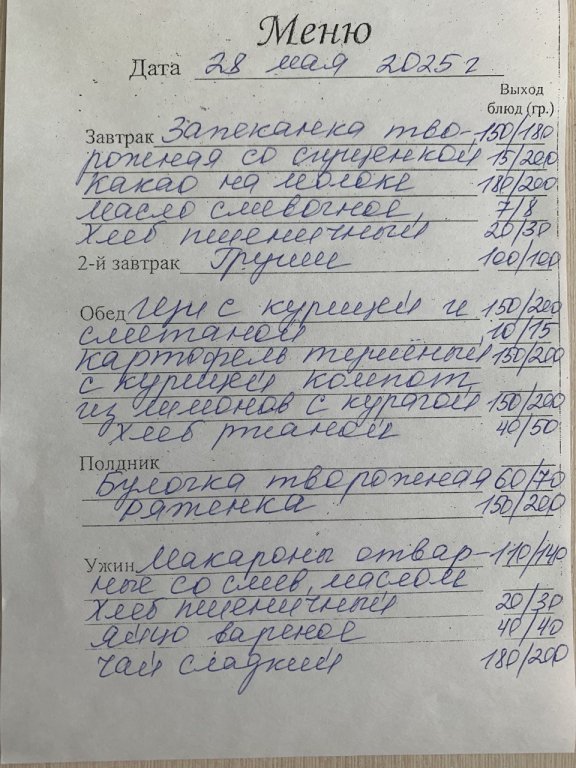 Меню
Дата 28 мая 2025 г
Выход
блюд (гр.)
Завтрак Запеканка тво- 150/180
рожная со сгущенкой 15/200
какао на молоке 180/200
масло сливочное 7/8
Хлеб пшеничный 20/30
2-й завтрак Груши 100/100
Обед Щи с курицей и 150/200
сметаной 10/15
картофель тушёный 150/200
с курицей компот
из лимонов с курагой 150/200
Хлеб ржаной 40/50
Полдник
Булочка творожная 60/70
ряженка 150/200
Ужин Макароны отвар- 110/140
ные со слив. маслом
Хлеб пшеничный 20/30
яйцо вареное 40/40
чай сладкий 180/200